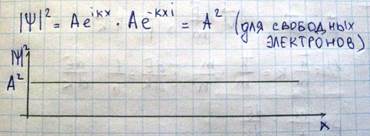 |Ψ|² = Ae^{ikx} · Ae^{-kxi} = A² (для свободных
электронов)
|Ψ|²
A²
x